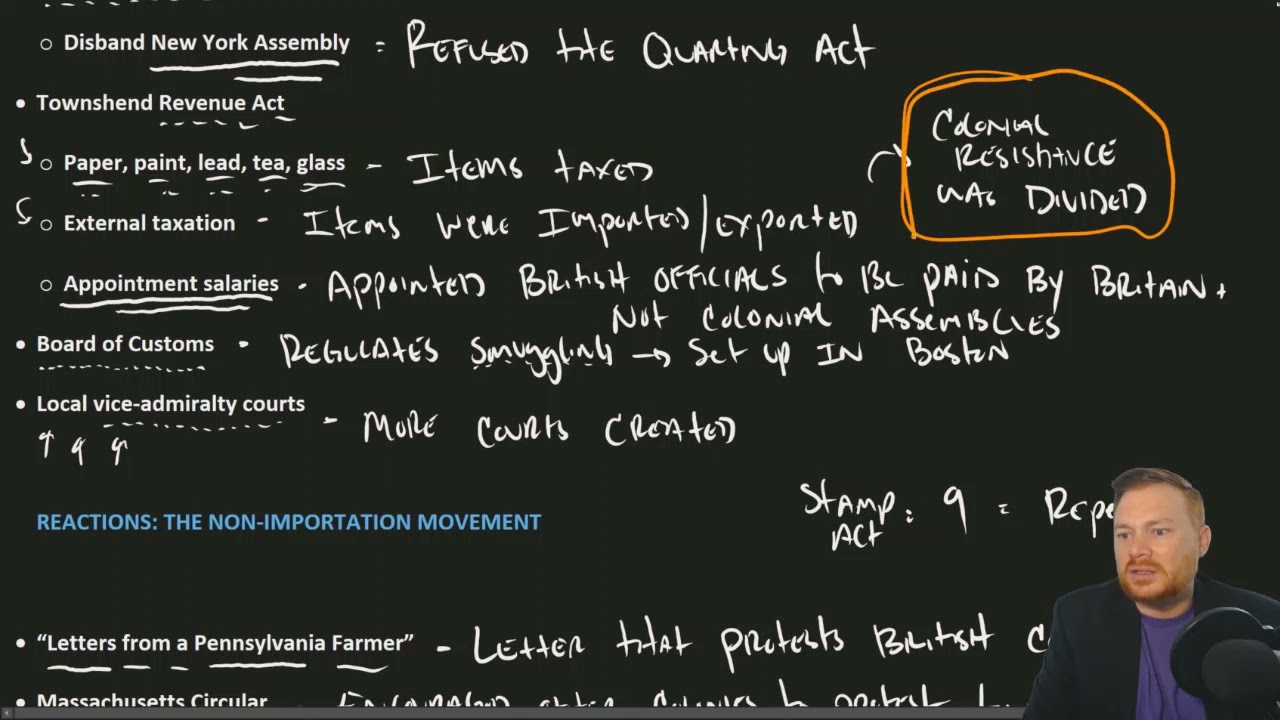 ○ Disband New York Assembly = REFUSED the QUARTING ACT
• Townshend Revenue Act
○ Paper, paint, lead, tea, glass - Items taxed
○ External taxation - Items were Imported/Exported
COLONIAL
RESISTANCE
WAS DIVIDED
○ Appointment salaries - Appointed British OFFICIALS to Be paid By BRitain +
Not COLONIAL ASSEMBLIES
• Board of Customs - REGULATES smuggling → Set up IN Boston
• Local vice-admiralty courts - MORE COURTS CREATED
REACTIONS: THE NON-IMPORTATION MOVEMENT
Stamp Act: 9 =
• “Letters from a Pennsylvania Farmer” - LETTER that protests British
• Massachusetts Circular - ENCOURAGED other Colonies to protest